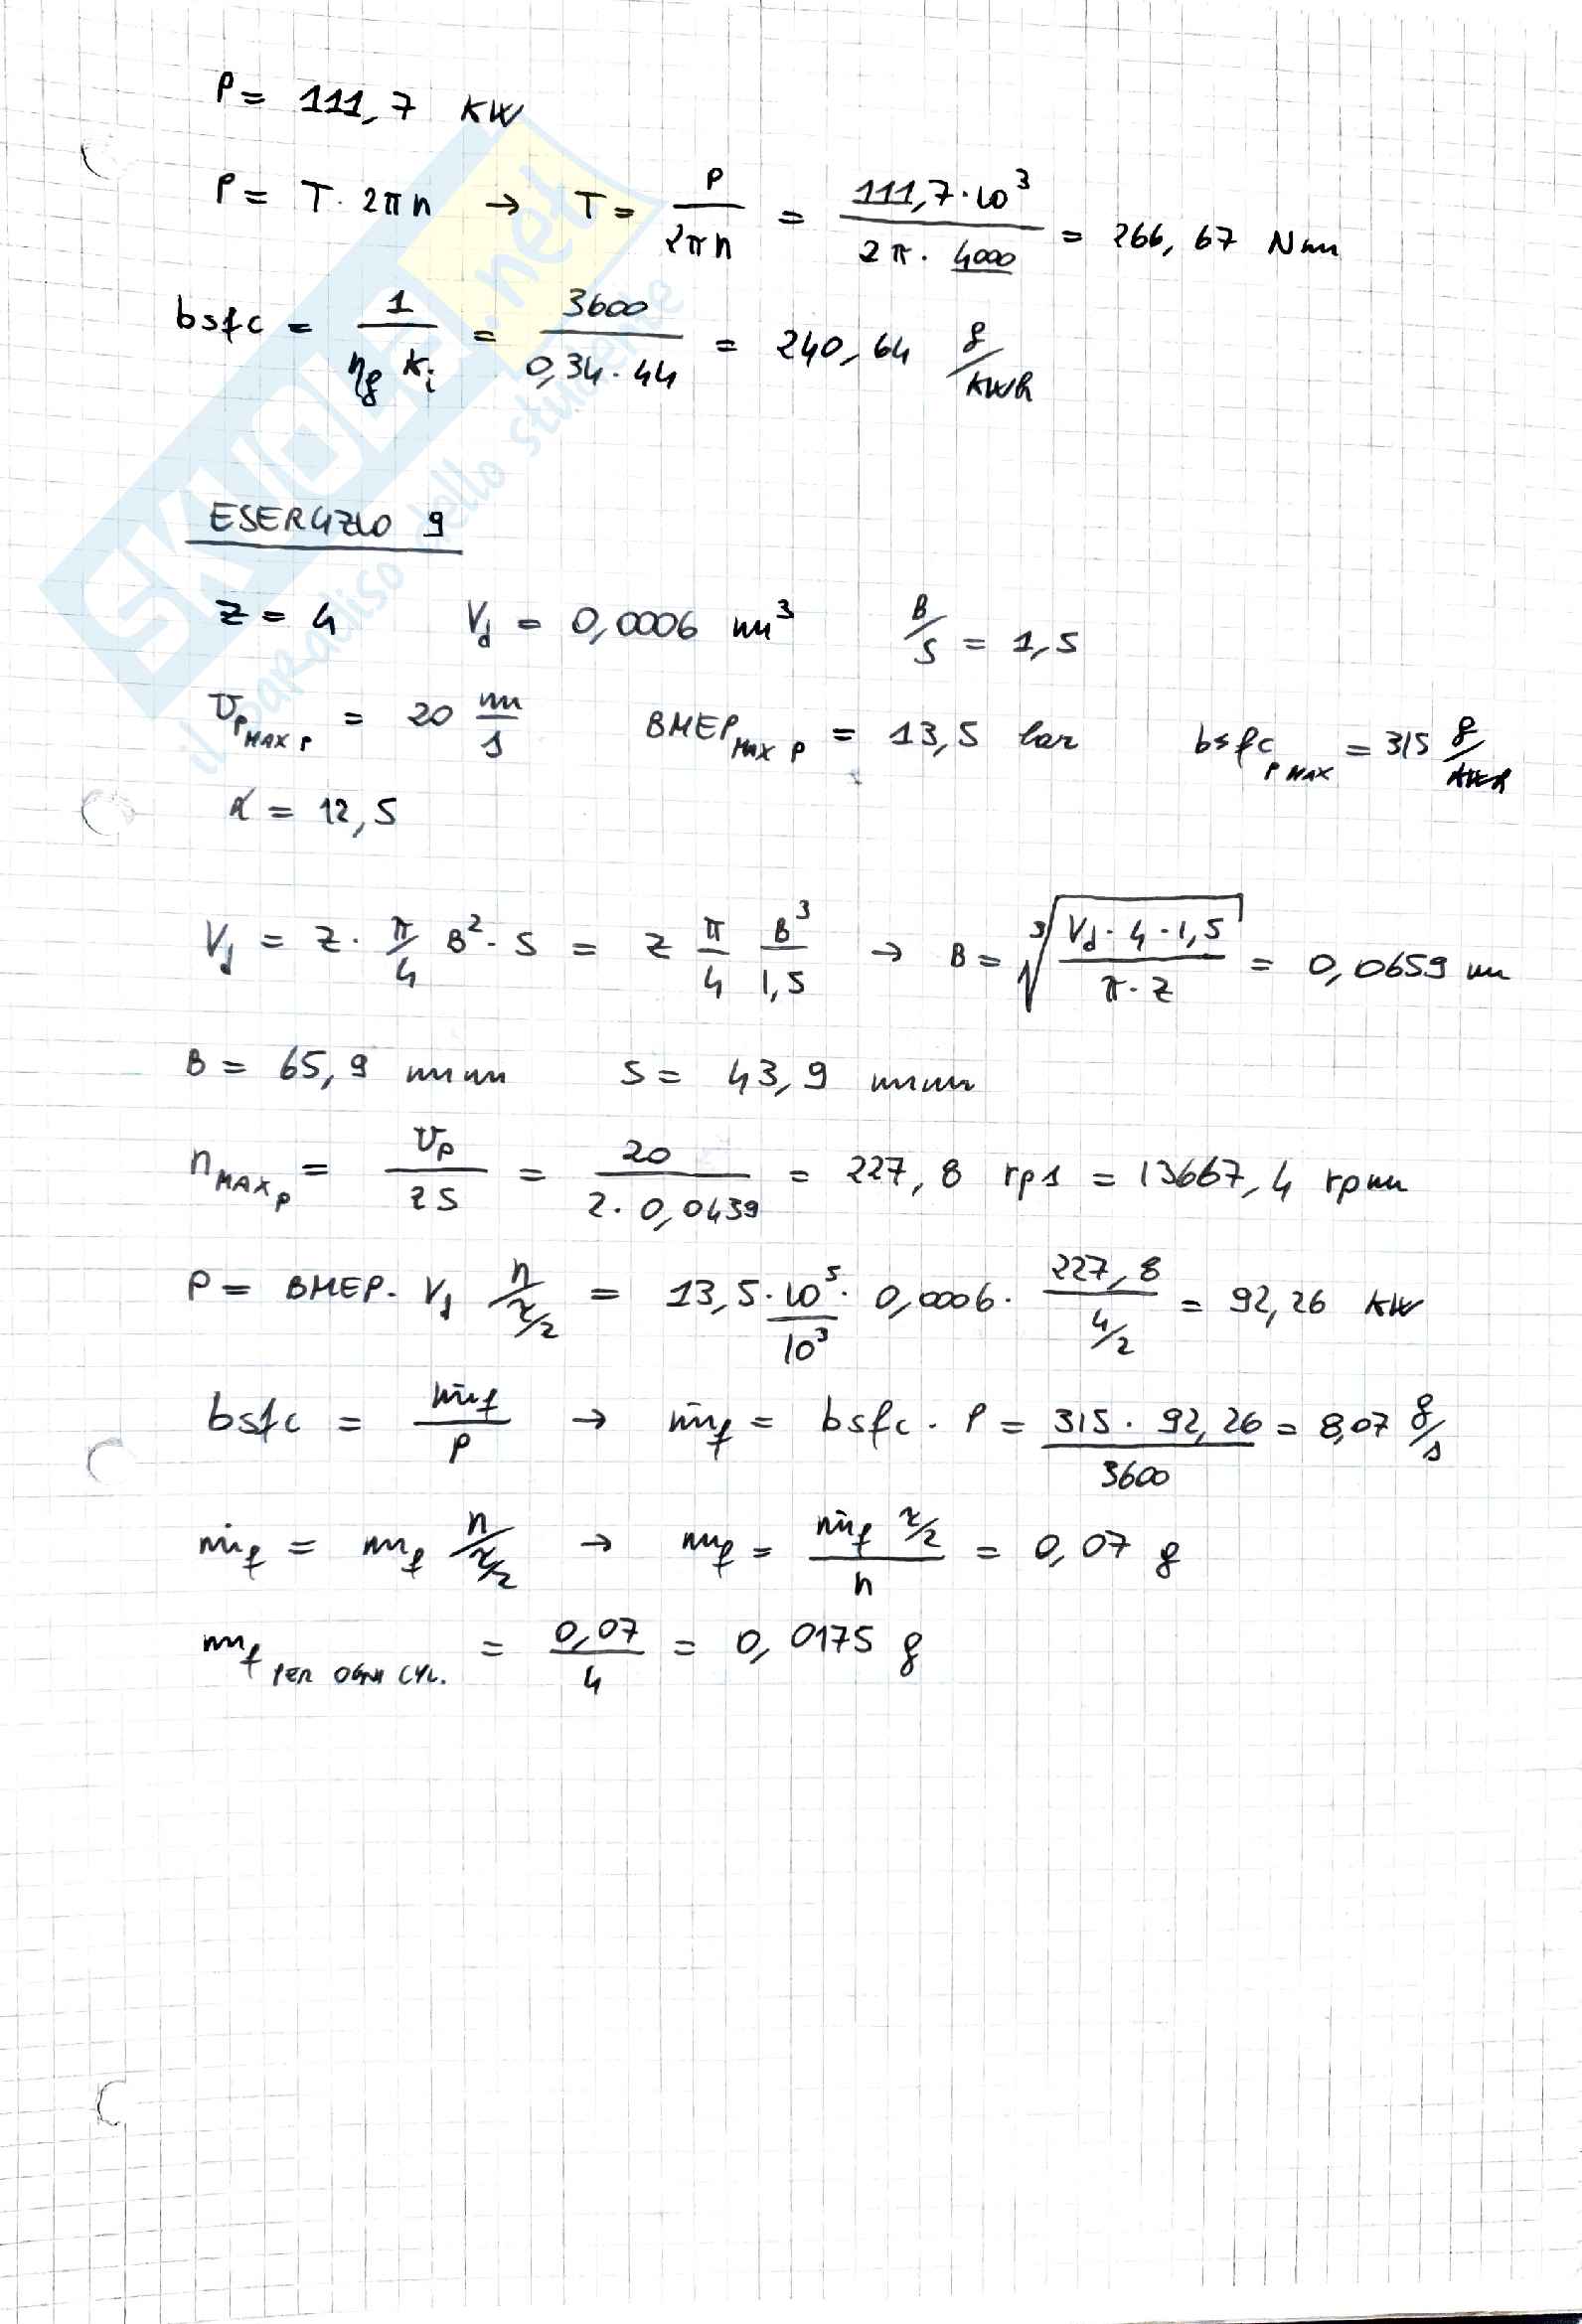 P = 111,7 KW
P = T · 2πn → T = P / 2πn = 111,7 · 10³ / 2π · 4000 = 266,67 Nm
bsfc = 1 / ηg Ki = 3600 / 0,34 · 44 = 240,64 g/KWh
SKUOLA.net
il paradiso dello studente
ESERCIZIO 9
Z = 4 Vd = 0,0006 m³ B/S = 1,5
υP MAX P = 20 m/s BMEP MAX P = 13,5 bar bsfc P MAX = 315 g/KWh
α = 12,5
Vd = Z · π/4 B² · S = Z π/4 B³/1,5 → B = ³√(Vd · 4 · 1,5 / π · Z) = 0,0659 m
B = 65,9 mm S = 43,9 mm
n MAX P = υP / 2S = 20 / 2 · 0,0439 = 227,8 rps = 13667,4 rpm
P = BMEP · Vd n/τ/2 = 13,5 · 10⁵/10³ · 0,0006 · 227,8 / 4/2 = 92,26 KW
bsfc = ṁf / P → ṁf = bsfc · P = 315 · 92,26 / 3600 = 8,07 g/s
ṁf = mf n/τ/2 → mf = ṁf τ/2 / n = 0,07 g
mf PER OGNI CYL. = 0,07 / 4 = 0,0175 g